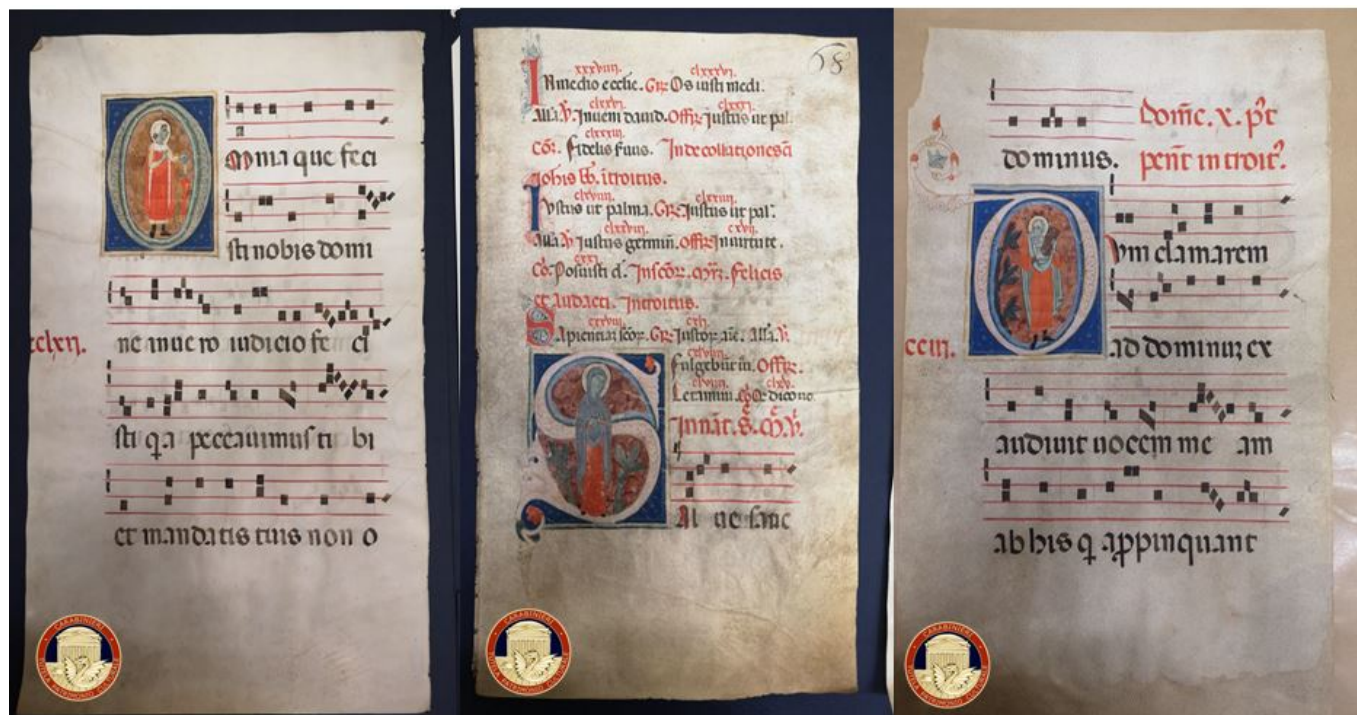 Omnia que feci
sti nobis domi
ne in uero iudicio fe ci
cclxii.
sti q̄a peccauimus ti bi
et mandatis tuis non o
CARABINIERI
TUTELA PATRIMONIO CULTURALE
68
xxxviiii. clxxxvi.
In medio ecclie. Gr̄. Os iusti medi.
clxxvi. clxxxi.
Alla. V̄. Inueni dauid. Offr̄. Iustus ut pal.
clxxxiii.
Cō. Fidelis seruus. In decollatione sc̄i
iohis bb. introitus.
clxviiii. clxxiiii.
Iustus ut palma. Gr̄. Iustus ut pal.
clxxviii. cxvii.
Alla. V̄. Iustus germin. Offr̄. In uirtute.
cxxi.
Cō. Posuisti d. In sc̄oꝝ. mr̄ꝝ. felicis
et audacti. Introitus.
cxxxviii. cxli.
Sapientiaꝝ sc̄oꝝ. Gr̄. Iustoꝝ aīe. Alla. V̄.
cxlviiii.
Fulgebūt iu. Offr̄.
clviiii. clxv.
Letamini. Cō. Q̄ dico uo.
In nat. S. M. V.
Al ue sanc
CARABINIERI
TUTELA PATRIMONIO CULTURALE
Domīc. x. p̄t
dominus. pent̄ introit̄.
Dum clamarem
cciii.
ad dominuꝫ ex
audiuit uocem me am
ab his q̄ appinquant
CARABINIERI
TUTELA PATRIMONIO CULTURALE